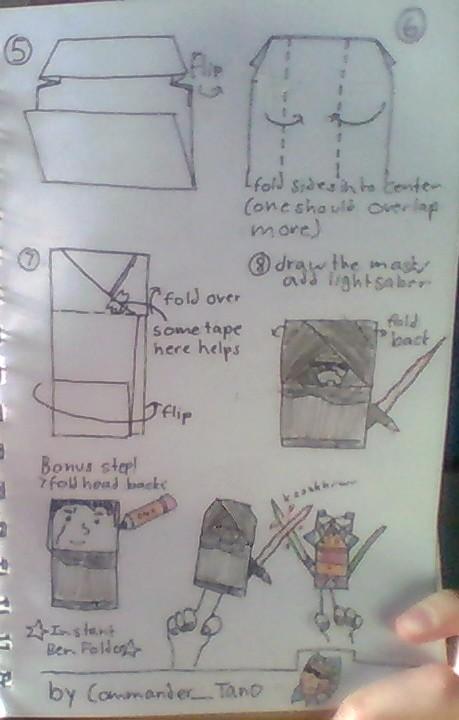 5
Flip
6
fold sides in to center
(one should overlap
more)
7
fold over
some tape
here helps
flip
8 draw the mask/
add lightsaber
fold
back
Bonus step!
fold head back
Instant
Ben Foldo
by Commander_Tano